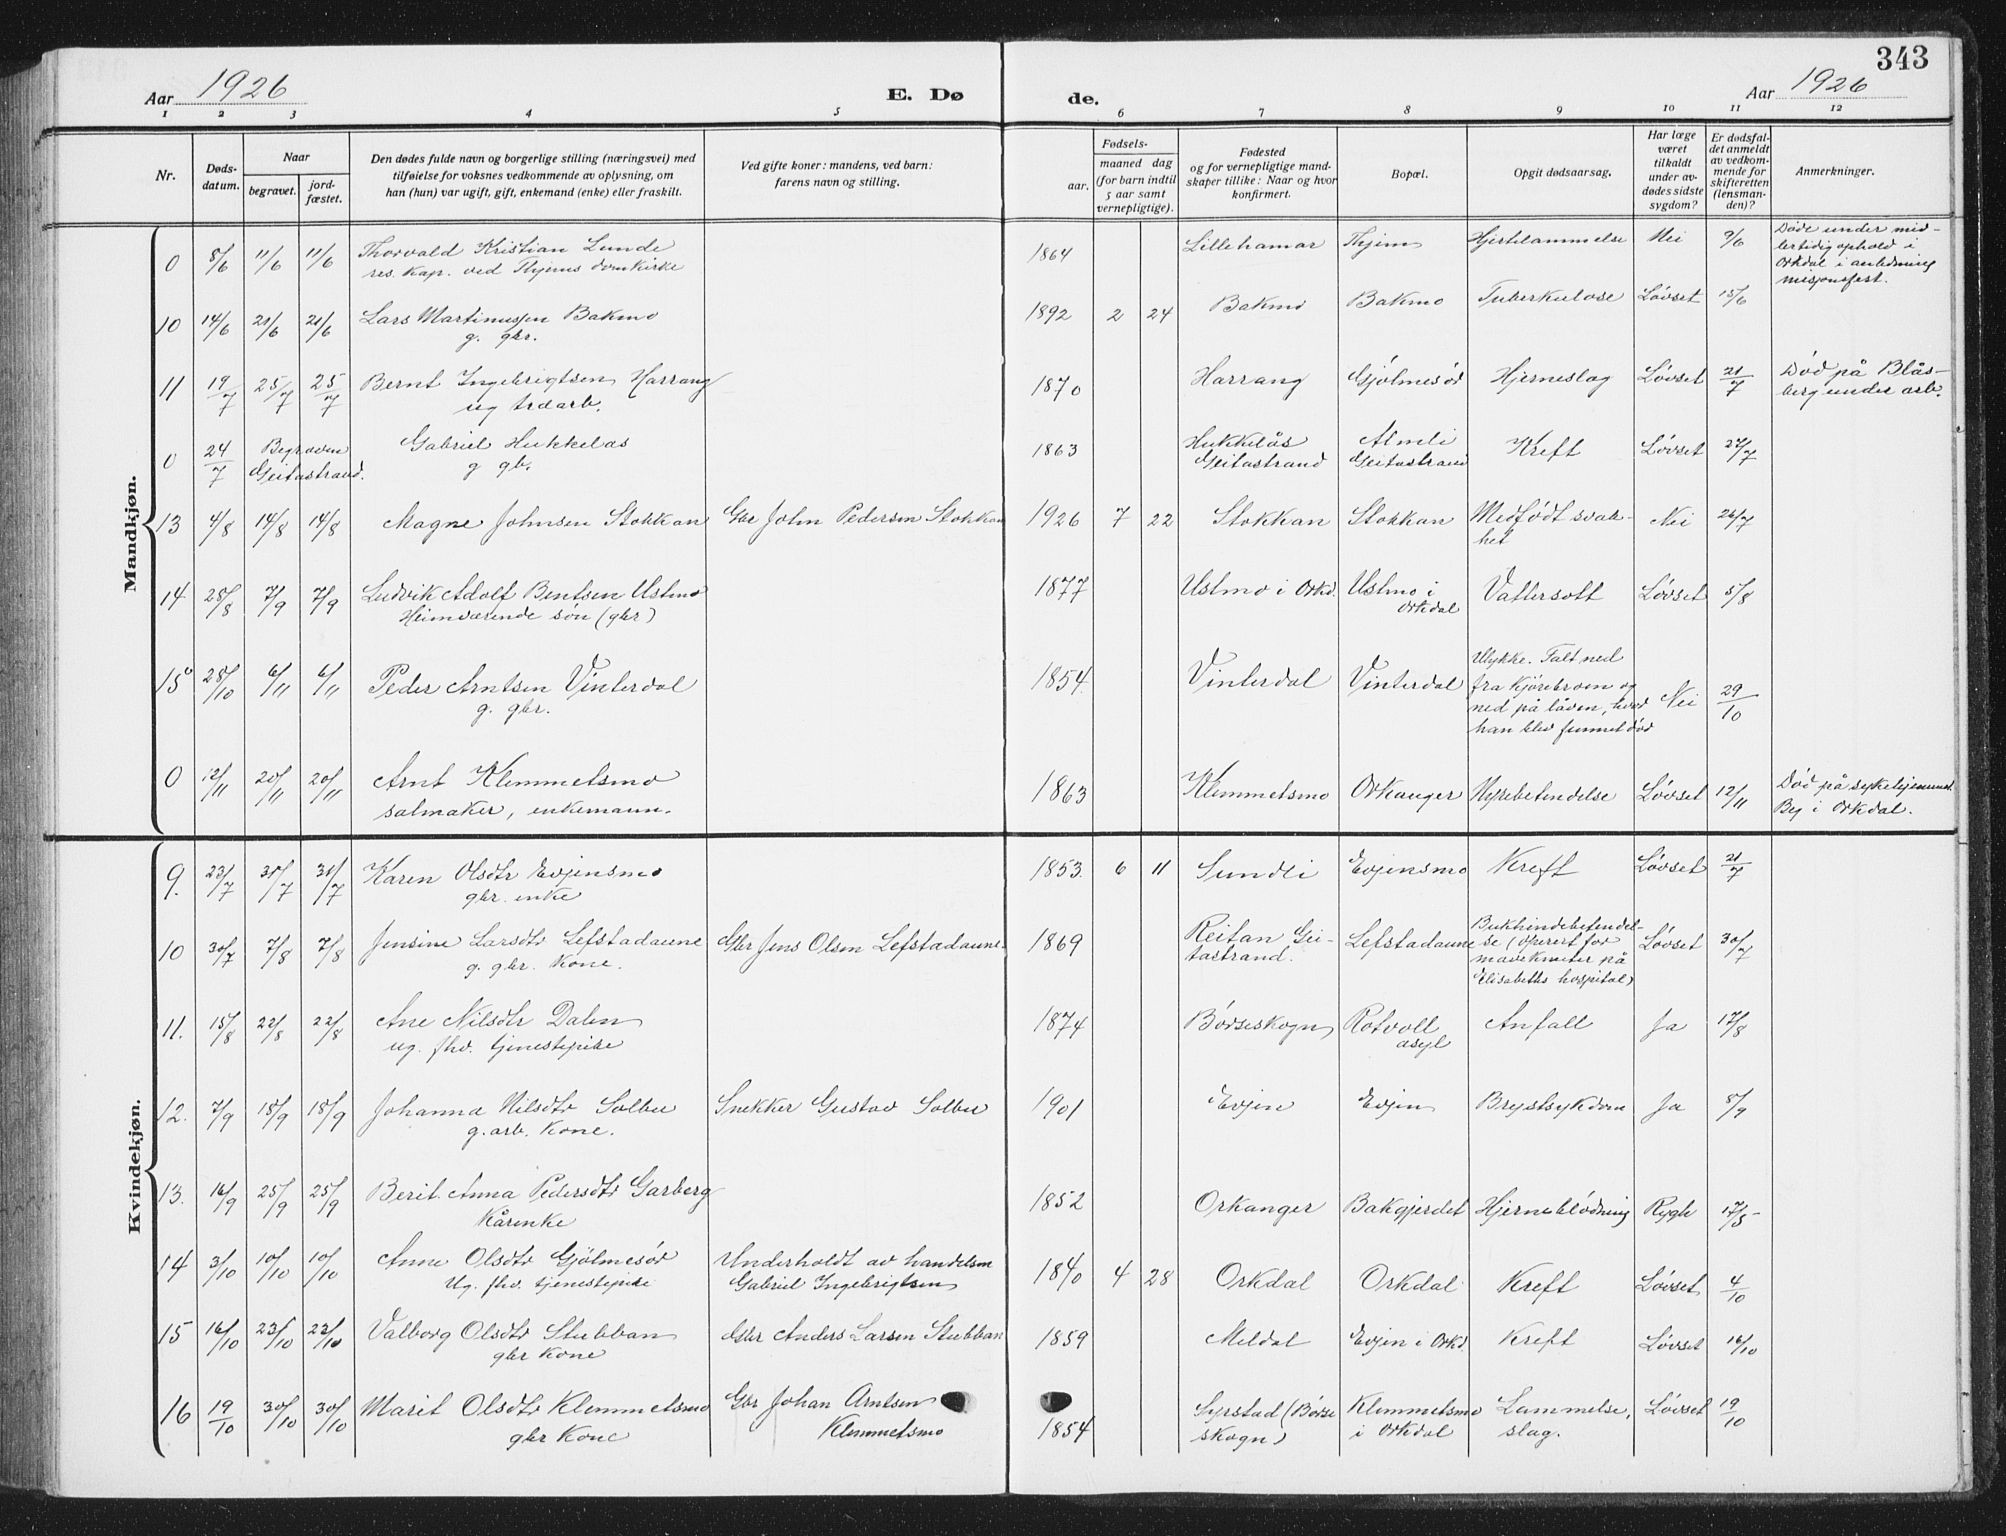 343
Aar 1926
E. Dø
de.
Aar 1926
1 2 3 4 5 6 7 8 9 10 11 12
Nr.
Døds-
datum.
Naar
begravet.
jord-
fæstet.
Den dødes fulde navn og borgerlige stilling (næringsvei) med
tilføielse for voksnes vedkommende av oplysning, om
han (hun) var ugift, gift, enkemand (enke) eller fraskilt.
Ved gifte koner: mandens, ved barn:
farens navn og stilling.
Fødsels-
aar.
maaned dag
(for barn indtil
5 aar samt
vernepligtige).
Fødested
og for vernepligtige mand-
skaper tillike: Naar og hvor
konfirmert.
Bopæl.
Opgit dødsaarsag.
Har læge
været
tilkaldt
under av-
dødes sidste
sygdom?
Er dødsfal-
det anmeldt
av vedkom-
mende for
skifteretten
(lensman-
den)?
Anmerkninger.
Mandkjøn.
0 8/6 11/6 11/6 Thorvald Kristian Lunde 1864 Lillehamar Thjem Hjertelammelse Nei 9/6 Døde under mid-
res. kap. ved Thjems domkirke lertidig ophold i
Orkdal i anledning
misjonsfest.
10 14/6 21/6 21/6 Lars Martinussen Bakmo 1892 2 24 Bakmo Bakmo Tuberkulose Løvset 15/6
g. gbr.
11 19/7 25/7 25/7 Bernt Ingebrigtsen Harrang 1870 Harrang Gjølmesør Hjerneslag Løvset 21/7 Død på Blås-
ug berg under arb.
0 24/7 Begraven Gabriel Hukkelås 1863 Hukkelås Almli Kreft Løvset 27/7
Geitastrand. g gb. Geitastrand Geitastrand
13 4/8 14/8 14/8 Magne Johnsen Stokkan Gbr John Pedersen Stokkan 1926 7 22 Stokkan Stokkan Medfødt svak- Nei 26/7
het
14 28/8 7/9 7/9 Ludvik Adolf Bentsen Ustmo 1877 Ustmo i Orkd. Ustmo i Vattersott Løvset 5/8
Heimværende søn (gbr) Orkdal
15 28/10 6/11 6/11 Peder Arntsen Vinterdal 1854. Vinterdal Vinterdal Ulykke. Falt ned Nei 29/10
g. gbr. fra kjørebroen og
ned på låven, hvor
han blev funnet død
0 12/11 20/11 20/11 Arnt Klemmetsmo 1863 Klemmetsmo Orkanger Nyrebetendelse Løvset 12/11 Død på sykehjemmet
salmaker, enkemann. Bej i Orkdal.
Kvindekjøn.
9. 23/7 31/7 31/7 Karen Olsdtr Evjensmo 1853. 6 11 Sundli Evjensmo Kreft Løvset 21/7
gbr. enke
10 30/7 7/8 7/8 Jensine Larsdtr Lefstadaune Gbr Jens Olsen Lefstadaune 1869 Reitan Gei- Lefstadaune Bukhindebetendel- Løvset 30/7
g. gbr. Kone. tastrand. se (operert for
maveknuter på
Elisabeths hospital)
11. 15/8 22/8 22/8 Ane Nilsdtr Dalen 1874 Børseskogn Rotvoll Anfall Ja 17/8
ug. fhv. tjenestepike asyl
12. 7/9 18/9 18/9 Johanna Nilsdtr Solbu Snekker Gustav Solbu 1901 Evjen Evjen Brystsykdom Ja 8/9
g. arb. Kone.
13. 16/9 25/9 25/9 Berit Anna Pedersdtr Garberg 1852 Orkanger Bakgjerdet Hjerneblødning Rygh
Kårenke
14 3/10 10/10 10/10 Anne Olsdtr Gjølmesør Underholdt av handelsm 1840 4 28 Orkdal Orkdal Kreft Løvset 4/10
Ug. fhv. tjenestepike Gabriel Ingebrigtsen
15 16/10 23/10 23/10 Valborg Olsdtr Stubban Gbr Anders Larsen Stubban 1859 Meldal Evjen i Orkd. Kreft Løvset 16/10
gbr Kone
16 19/10 30/10 30/10 Marit Olsdtr Klemmetsmo Gbr Johan Arntsen 1854 Syrstad (Børse Klemmetsmo Lammelse, Løvset 19/10
gbr Kone Klemmetsmo skogn) i Orkdal slag.